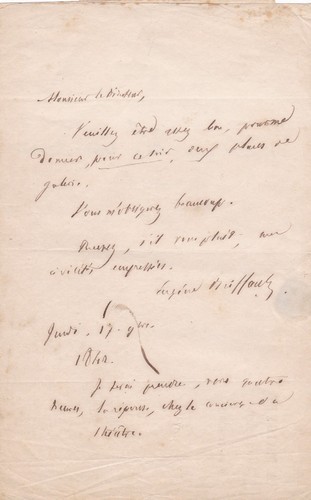 Monsieur le Directeur,
Veuillez être assez bon, pour me
donner, pour ce soir, deux places de
galerie.
Vous m'obligerez beaucoup.
Recevez, s'il vous plait, mes
civilités empressées.
Eugène Briffault
Jeudi, 17
184
Je ferai prendre, vers quatre
heures, la réponse, chez le concierge du
théâtre.